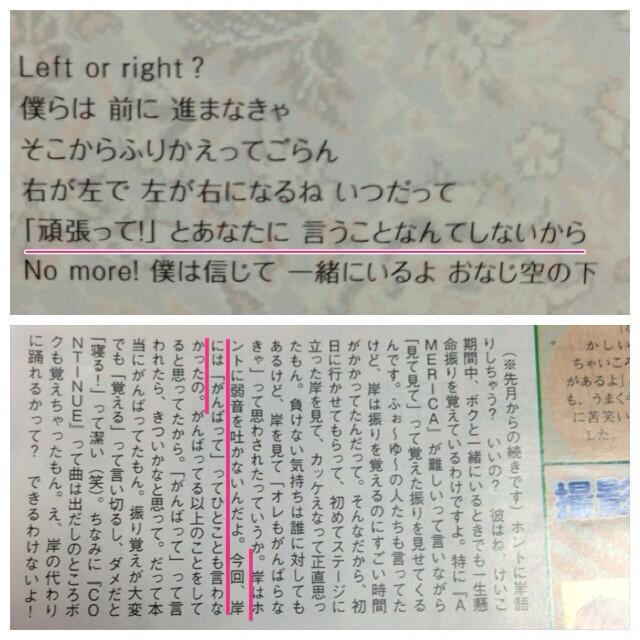 Left or right?
僕らは 前に 進まなきゃ
そこからふりかえってごらん
右が左で 左が右になるね いつだって
「頑張って!」とあなたに 言うことなんてしないから
No more! 僕は信じて 一緒にいるよ おなじ空の下
(※先月からの続きです)ホントに岸語
りしちゃう? いいの? 彼はね、けいこ
期間中、ボクと一緒にいるときでも一生懸
命振りを覚えているわけですよ。特に『A
MERICA』が難しいって言いながら
「見て見て」って覚えた振りを見せてくる
んです。ふぉ〜ゆ〜の人たちも言ってた
けど、岸は振りを覚えるのにすごい時間
がかかってたんだって。そんなだから、初
日に行かせてもらって、初めてステージに
立った岸を見て、カッケえなって正直思っ
たもん。負けない気持ちは誰に対しても
あるけど、岸を見て「オレもがんばらな
きゃ」って思わされたっていうか。岸はホ
ントに弱音を吐かないんだよ。今回、岸
には「がんばって」ってひとことも言わな
かったの。がんばってる以上のことをして
ると思ってたから。「がんばって」って言
われたら、きついかなと思って。だって本
当にがんばってたもん。振り覚えが大変
でも「覚える」って言い切るし、ダメだと
「寝る!」って潔い(笑)。ちなみに『CO
NTINUE』って曲は出だしのところボ
クも覚えちゃったもん。え、岸の代わり
に踊れるかって? できるわけないよ!
かしい
ちゃいこ
があるよ」
も、うまく
に苦笑い
した。
撮影